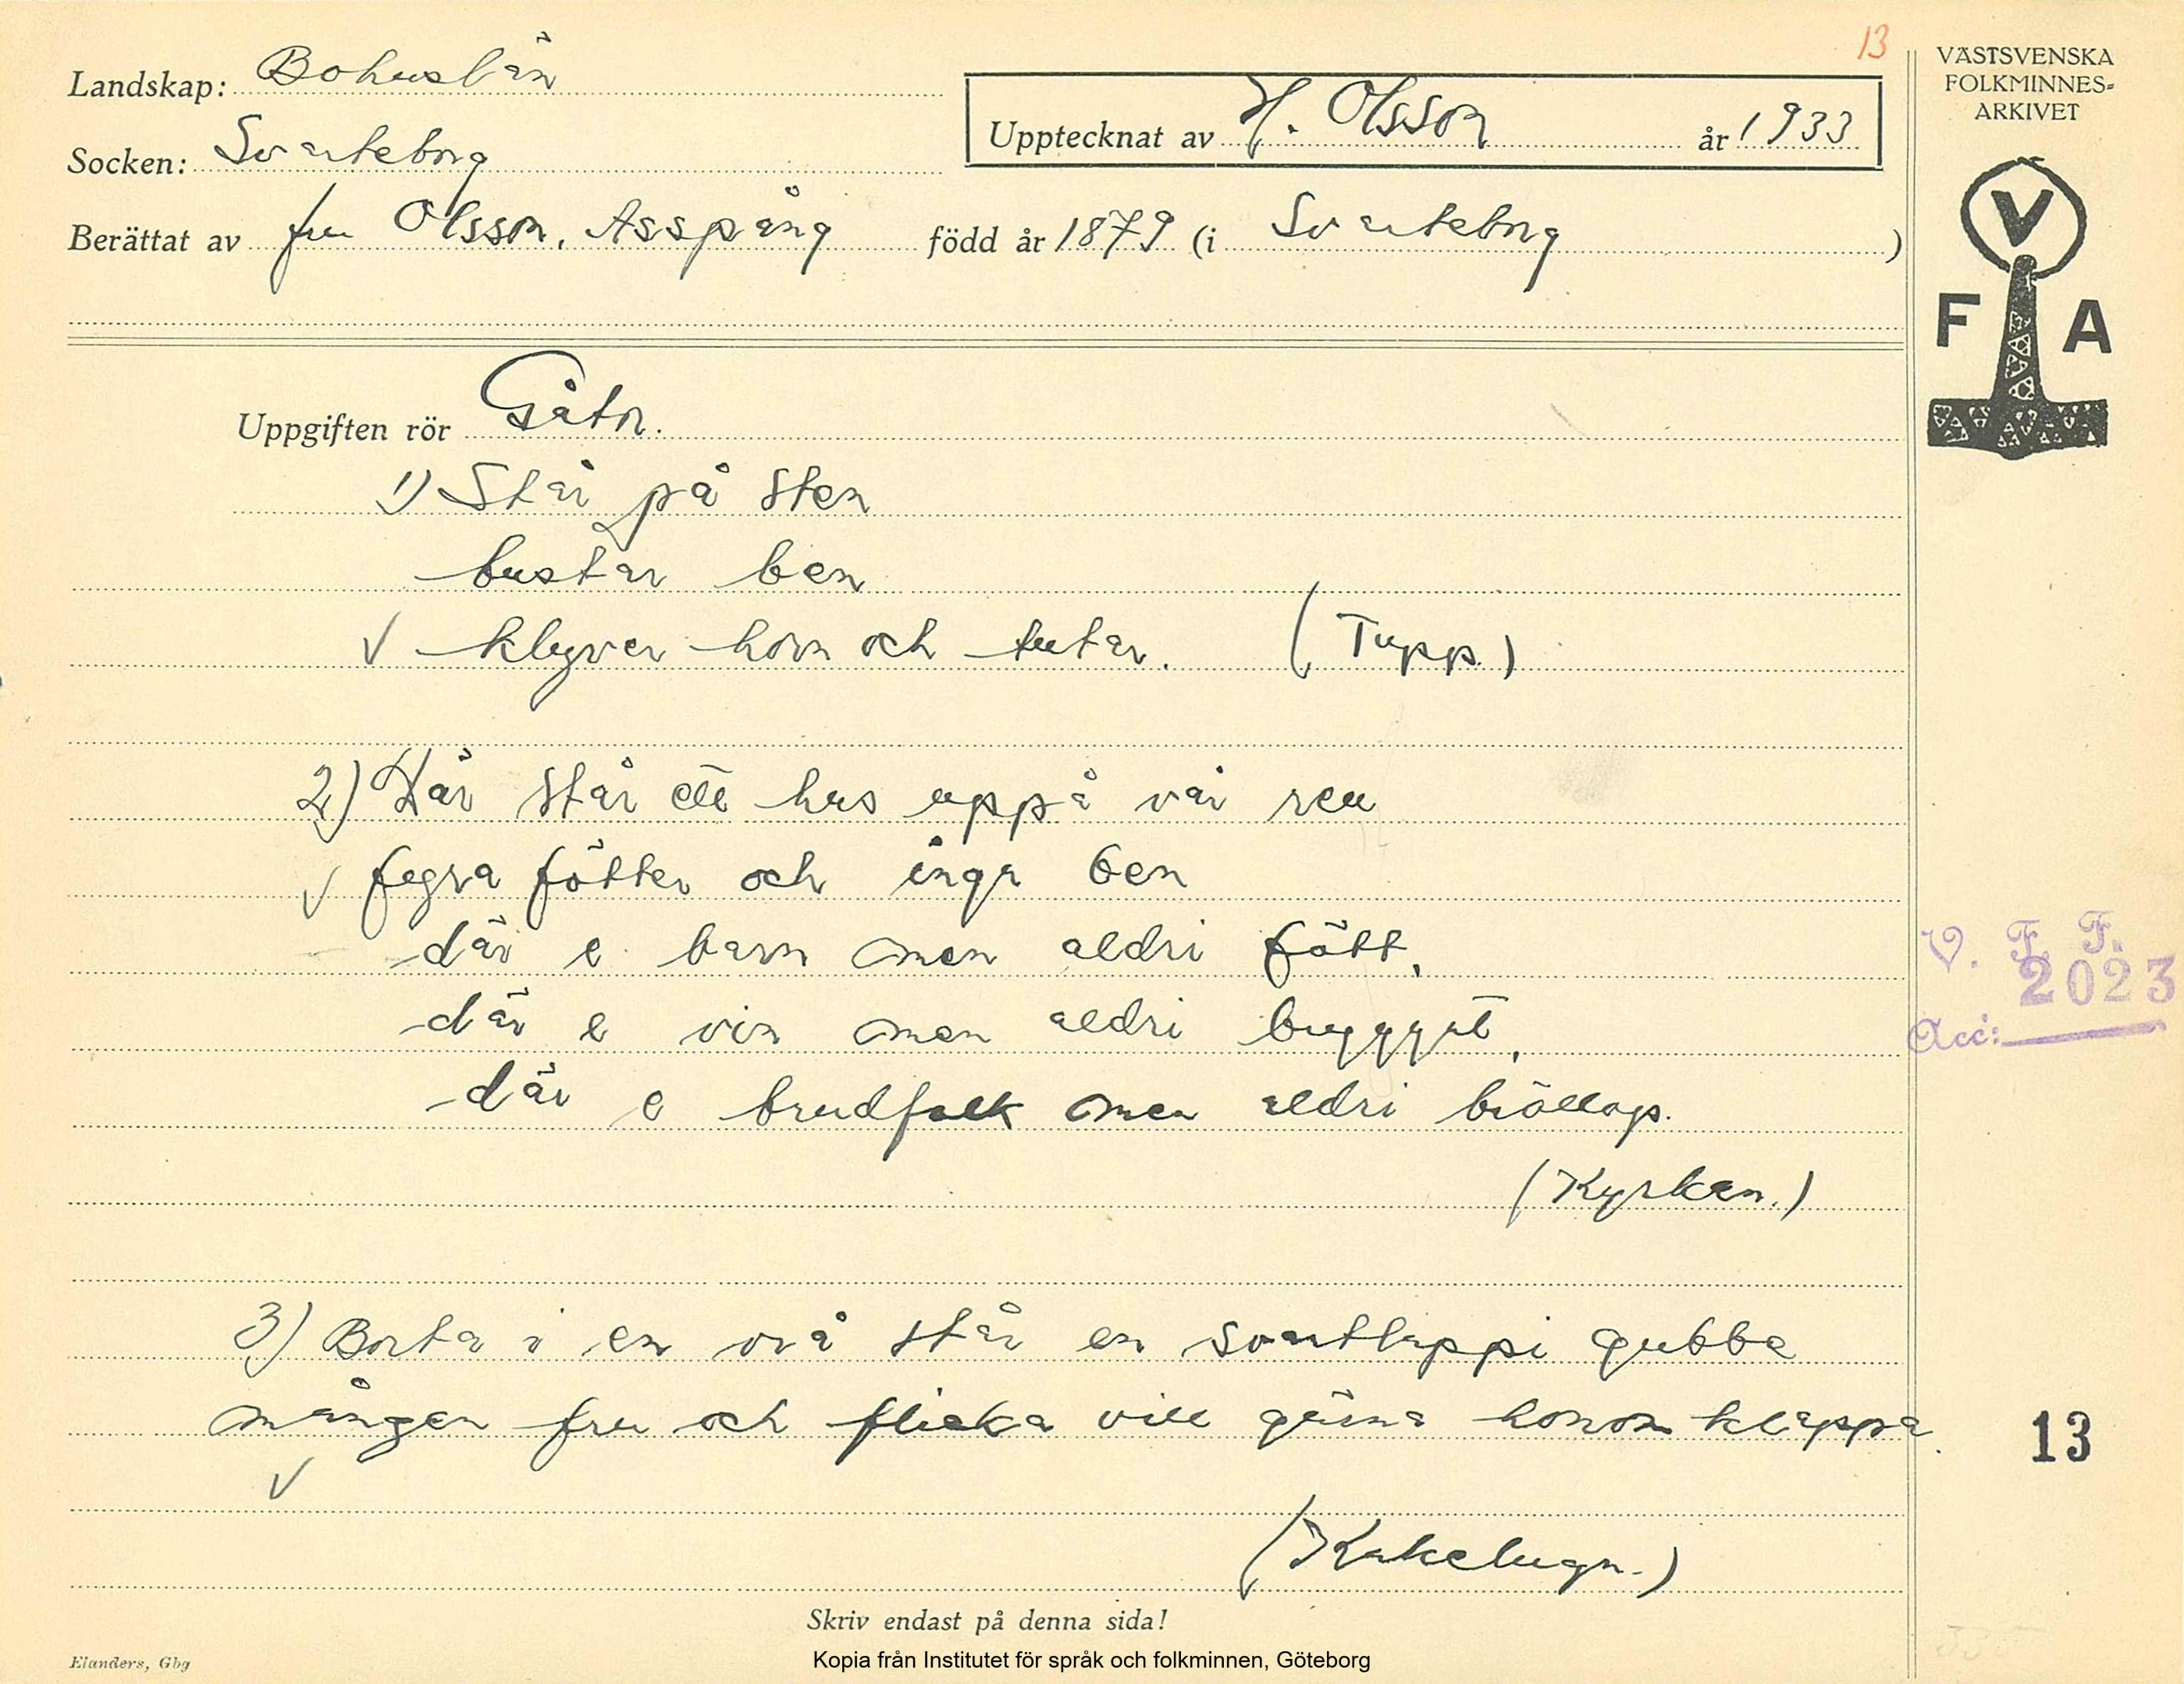 13
Landskap: Bohuslän
Socken: Svarteborg
Upptecknat av H. Olsson år 1933
Berättat av fru Olsson, Asspång född år 1879 (i Svarteborg)
VÄSTSVENSKA
FOLKMINNES=
ARKIVET
V
F A
Uppgiften rör Gåtor.
1) Står på sten
bustar ben
√ klyver horn och tutar. (Tupp.)
2) Där står ett hus uppå vår ren
√ fegra fötter och inga ben
där e barn men aldri fött,
där e vin men aldri bryggat,
där e brudfolk men aldri bröllop.
(Kyrkan.)
3) Borta i en vrå står en svartlappi gubbe
mången fru och flicka vill gärna honom klappa.
√
(Kakelugn.)
V. F. F.
2023
Acc:
13
Skriv endast på denna sida!
Elanders, Gbg
Kopia från Institutet för språk och folkminnen, Göteborg